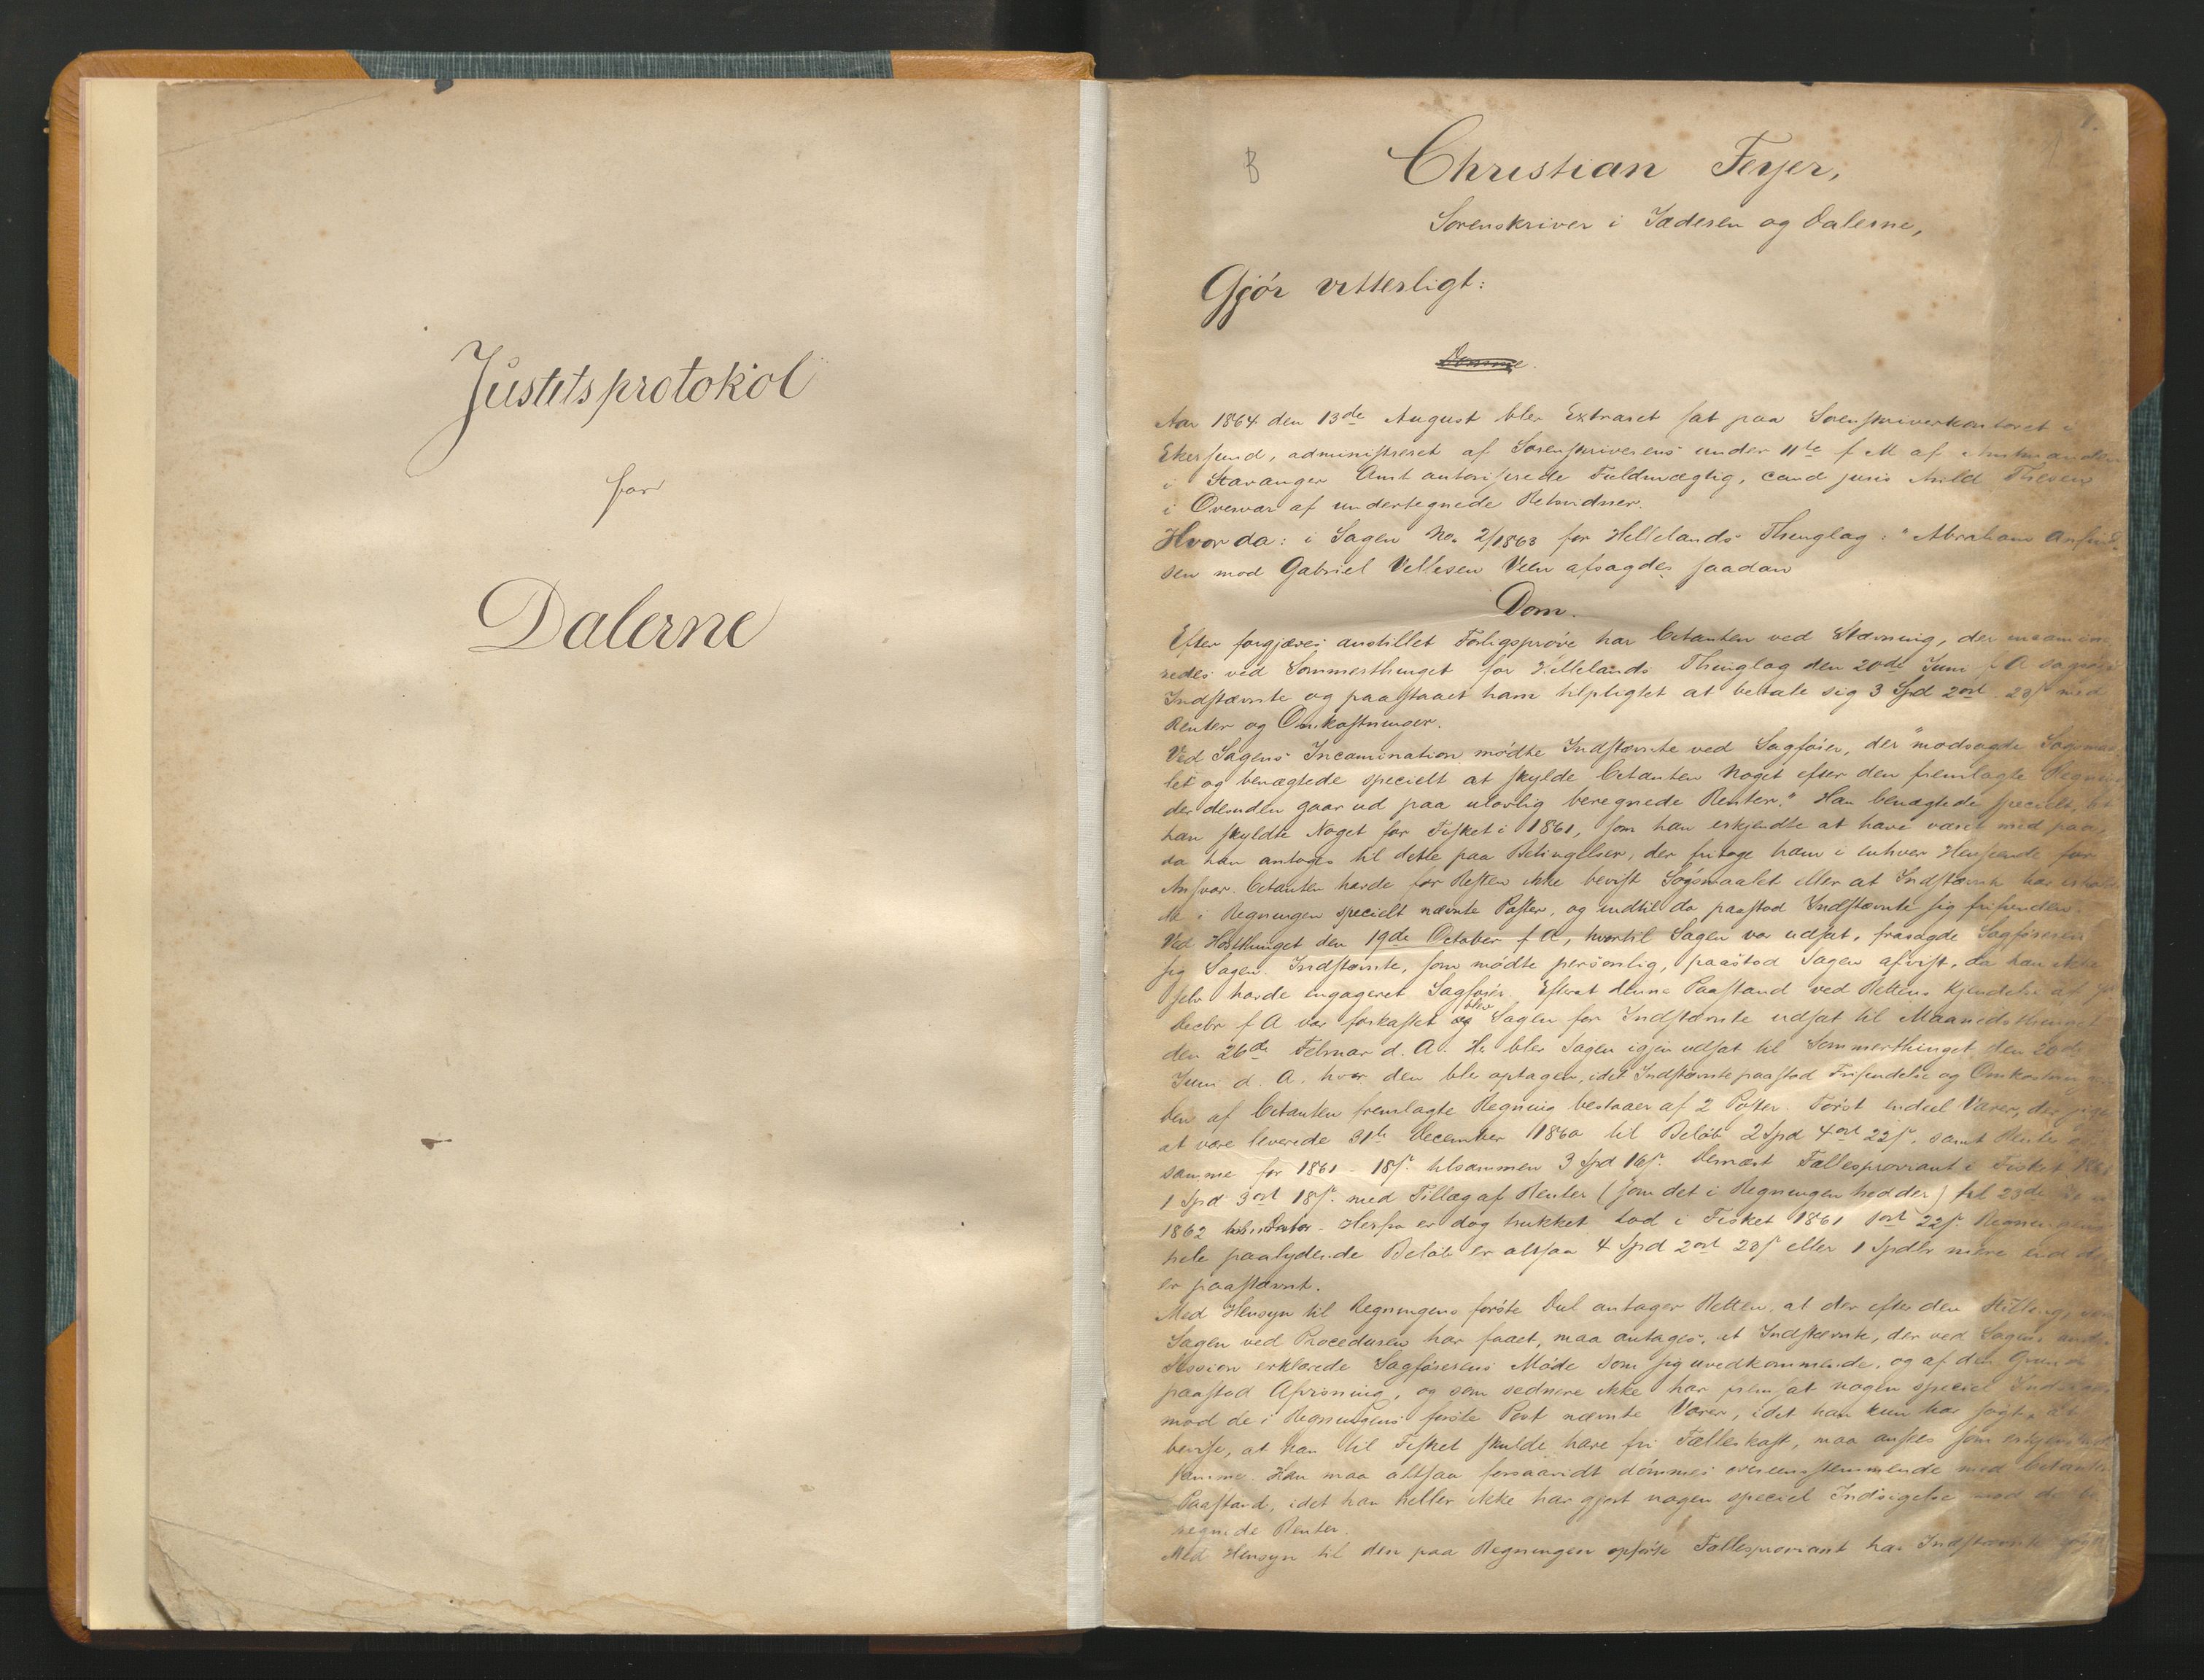 Justitsprotokol
for
Dalerne
1.
B
Christian Feyer,
Sorenskriver i Jæderen og Dalerne,
Gjör vitterligt:
Aar 1864 den 13de August blev Extraret sat paa Sorenskriverkontoret i
Ekersund, administreret af Sorenskriverens under 11te f M af Amtmanden
i Stavanger Amt autoriserede Fuldmægtig, cand juris Thesen
i Overvær af undertegnede Retsvidner.
Hvorda: i Sagen No. 2/1863 for Hellelands Thinglag: "Abraham Anfind-
sen mod Gabriel Vellesen Veen afsagdes saadan
Dom.
Efter forgjæves anstillet Forligspröve har Citanten ved Stævning, der incamine-
redes ved Sommerthinget for Hellelands Thinglag den 20de Juni f A sagsögt
Indstævnte og paastaaet ham tilpligtet at betale sig 3 Spd 2ort 23s med
Renter og Omkostninger.
Ved Sagens Incamination mödte Indstævnte ved Sagförer, der "modsagde Sögsmaa-
let og benægtede specielt at skylde Citanten Noget efter den fremlagte Regning
der desuden gaar ud paa ulovlig beregnede Renter." Han benægtede specielt, at
han skyldte Noget for Fisket i 1861, som han erkjendte at have været med paa,
da han antoges til dette paa Betingelser, der fritage ham i enhver Henseende for
Ansvar. Citanten havde for Resten ikke bevist Sögsmaalet eller at Indstævnte har erholdt
de i Regningen specielt nævnte Poster, og indtil da paastod Indstævnte sig frifunden.
Ved Hostthinget den 19de October f A, hvortil Sagen var udsat, frasagde Sagföreren
sig Sagen. Indstævnte, som mödte personlig, paastod Sagen afvist, da han ikke
selv havde engageret Sagförer. Efterat denne Paastand ved Rettens Kjendelse af
Decbr f A var forkastet og blev Sagen for Indstævnte udsat til Maanedsthinget
den 26de Februar d. A. Her blev Sagen igjen udsat til Sommerthinget den 20de
Juni d. A. hvor den blev optagen, idet Indstævnte paastod Frifindelse og Omkostninger
Den af Citanten fremlagte Regning bestaaer af 2 Poster. Först endeel Varer, der siges
at være leverede 31te December 1860 til Belöb 2 Spd 4ort 22s. samt Renter af
samme for 1861 - 18s. tilsammen 3 Spd 16s. Dernæst Fællesproviant i Fisket
1 Spd 3ort 18s. med Tillæg af Renter (som det i Regningen hedder) til 23de
1862 Herfra er dog trukket Lod i Fisket 1861 1ort 22s. Regningens
hele paalydende Belöb er altsaa 4 Spd 2ort 23s eller 1 Spdlr mere end der
er paastævnt.
Med Hensyn til Regningens förste Deel antager Retten, at der efter den Stilling, som
Sagen ved Proceduren har faaet, maa antages, at Indstævnte, der ved Sagens anden
Session erklærede Sagförerens Möde som sig uvedkommende, og af den Grund
paastod Afvisning, og som sednere ikke har fremsat nogen speciel Indsigelse
mod de i Regningens förste Post nævnte Varer, idet han kun har sögt at
bevise, at han til Fisket skulde have fri Fælleskost, maa ansees som erkjendende
samme. Han maa altsaa forsaavidt dömmes overensstemmende med Citantens
Paastand, idet han heller ikke har gjort nogen speciel Indsigelse mod de be-
regnede Renter.
Med Hensyn til den paa Regningen opförte Fællesproviant har Indstævnte sögt